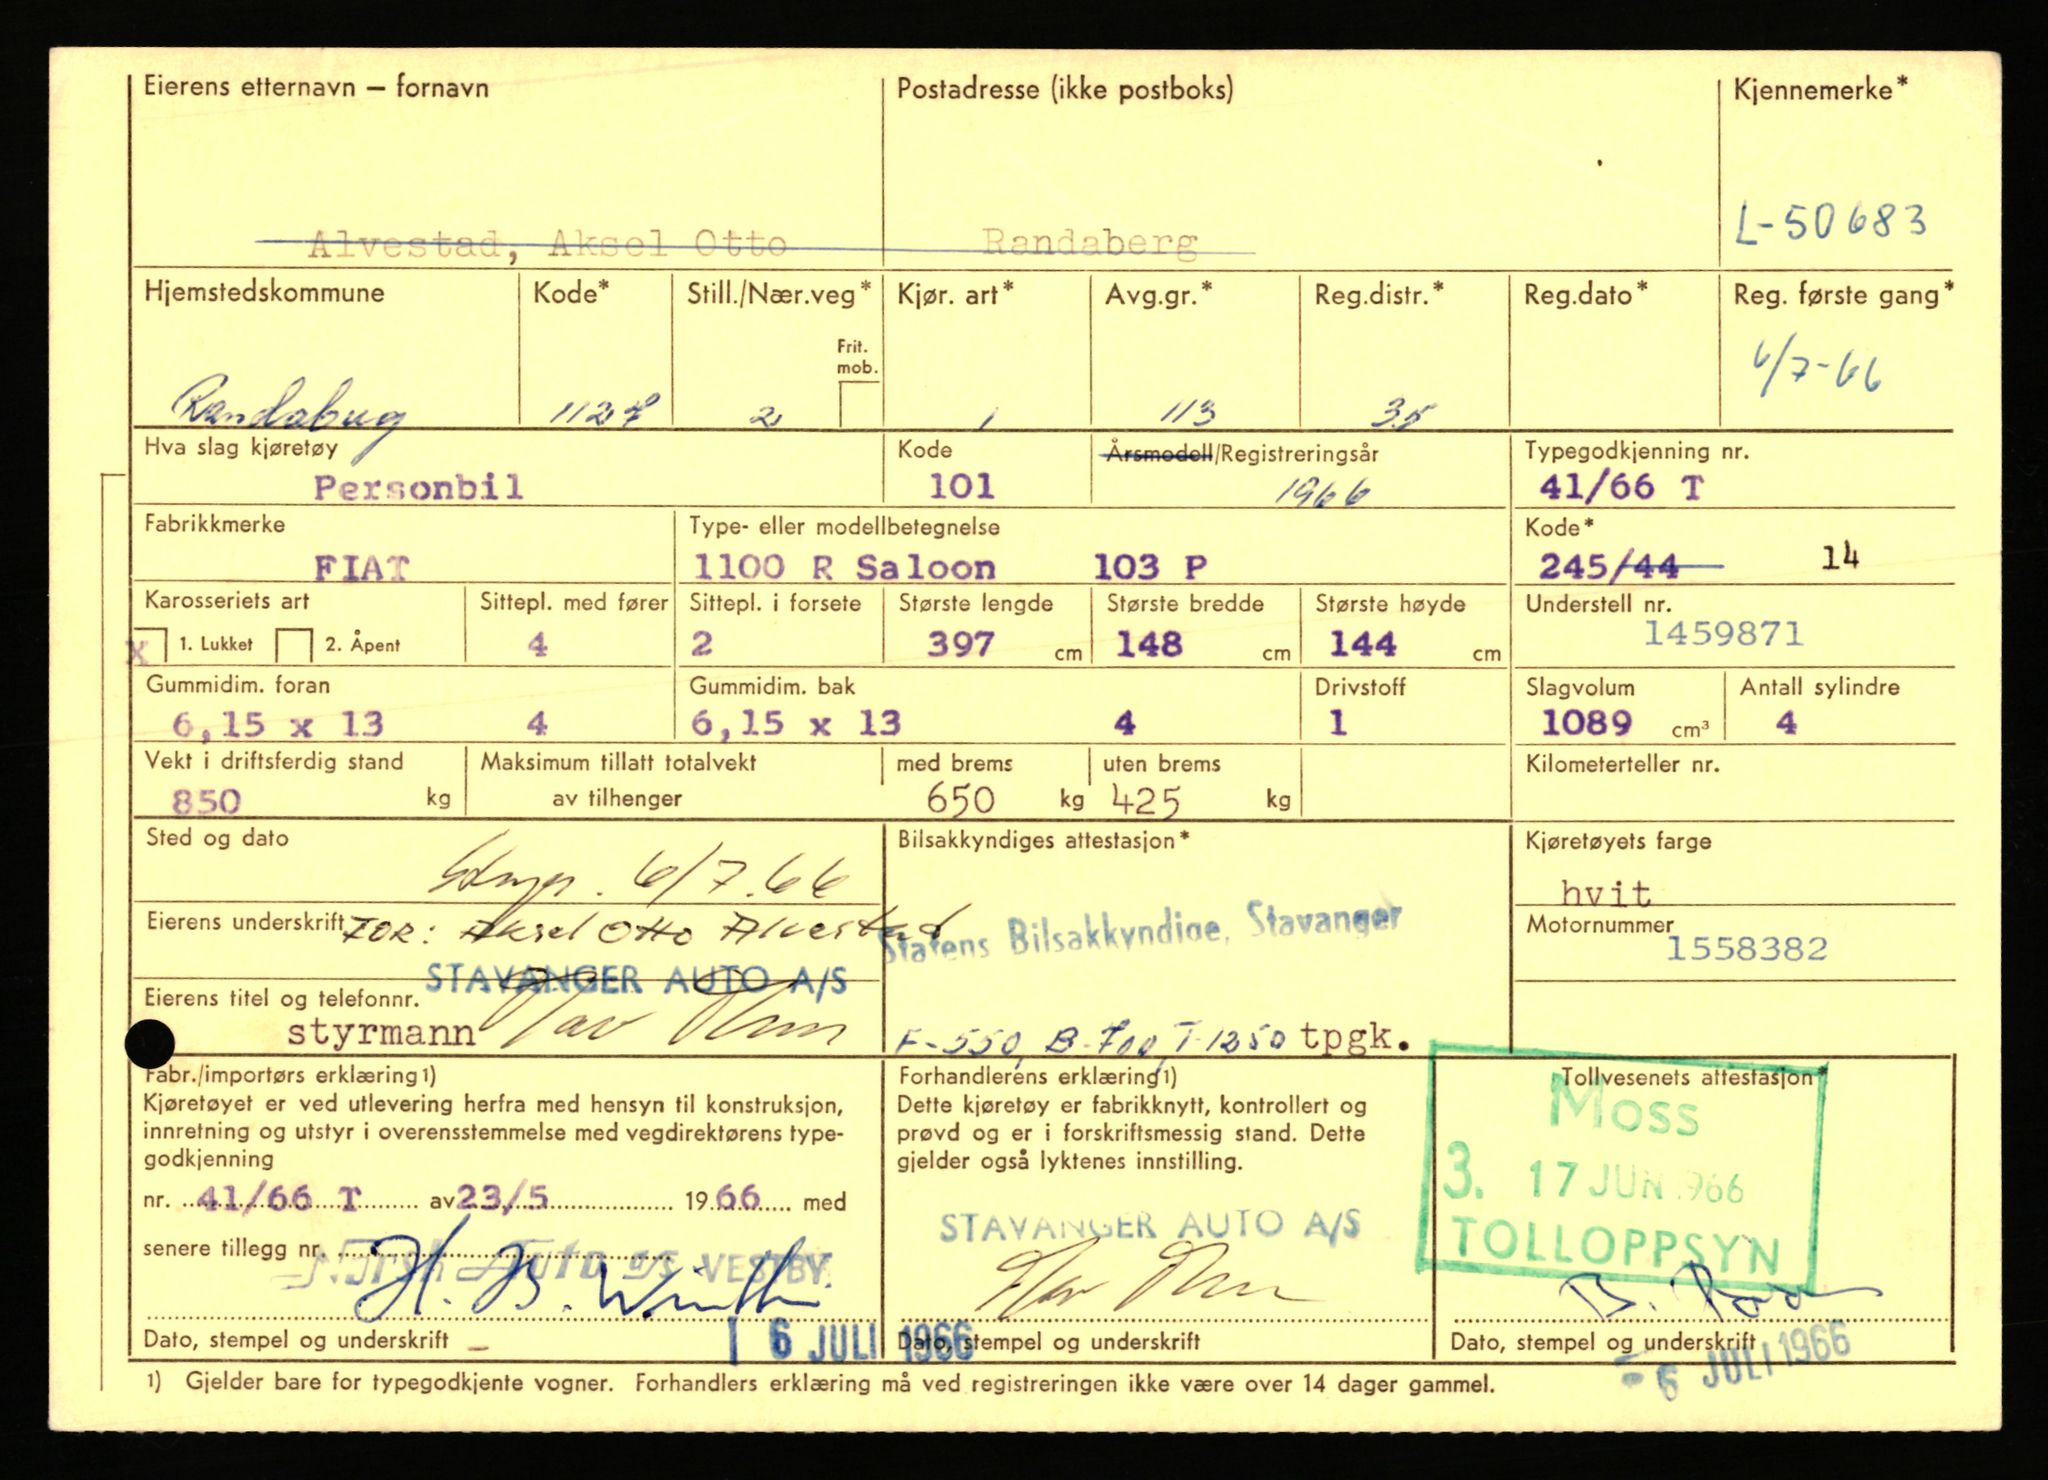 Eierens etternavn – fornavn
Postadresse (ikke postboks)
Kjennemerke*
Alvestad, Aksel Otto
Randaberg
L-50683
Hjemstedskommune
Kode*
Still./Nær.veg*
Kjør. art*
Avg.gr.*
Reg.distr.*
Reg.dato*
Reg. første gang*
Frit.
mob.
6/7-66
Randaberg
1127
2
1
113
35
Hva slag kjøretøy
Kode
Årsmodell/Registreringsår
Typegodkjenning nr.
Personbil
101
1966
41/66 T
Fabrikkmerke
Type- eller modellbetegnelse
Kode*
FIAT
1100 R Saloon 103 P
245/44 14
Karosseriets art
Sittepl. med fører
Sittepl. i forsete
Største lengde
Største bredde
Største høyde
Understell nr.
x 1. Lukket 2. Åpent
4
2
397 cm
148 cm
144 cm
1459871
Gummidim. foran
Gummidim. bak
Drivstoff
Slagvolum
Antall sylindre
6,15 x 13 4
6,15 x 13 4
1
1089 cm³
4
Vekt i driftsferdig stand
Maksimum tillatt totalvekt
med brems
uten brems
Kilometerteller nr.
850 kg
av tilhenger
650 kg
425 kg
Sted og dato
Bilsakkyndiges attestasjon*
Kjøretøyets farge
6/7.66
hvit
Eierens underskrift
FOR: Aksel Otto Alvestad
Statens Bilsakkyndige, Stavanger
Motornummer
1558382
STAVANGER AUTO A/S
Eierens titel og telefonnr.
styrmann
F-550, B-700, T-1250 tpgk.
Fabr./importørs erklæring 1)
Forhandlerens erklæring 1)
Tollvesenets attestasjon*
Kjøretøyet er ved utlevering herfra med hensyn til konstruksjon,
innretning og utstyr i overensstemmelse med vegdirektørens type-
godkjenning
Dette kjøretøy er fabrikknytt, kontrollert og
prøvd og er i forskriftsmessig stand. Dette
gjelder også lyktenes innstilling.
MOSS
3. 17 JUN 1966
TOLLOPPSYN
nr. 41/66 T av 23/5 1966 med
senere tillegg nr.
Norsk Auto a/s VESTBY.
STAVANGER AUTO A/S
Dato, stempel og underskrift
6 JULI 1966
Dato, stempel og underskrift
Dato, stempel og underskrift
- 6 JULI 1966
1) Gjelder bare for typegodkjente vogner. Forhandlers erklæring må ved registreringen ikke være over 14 dager gammel.